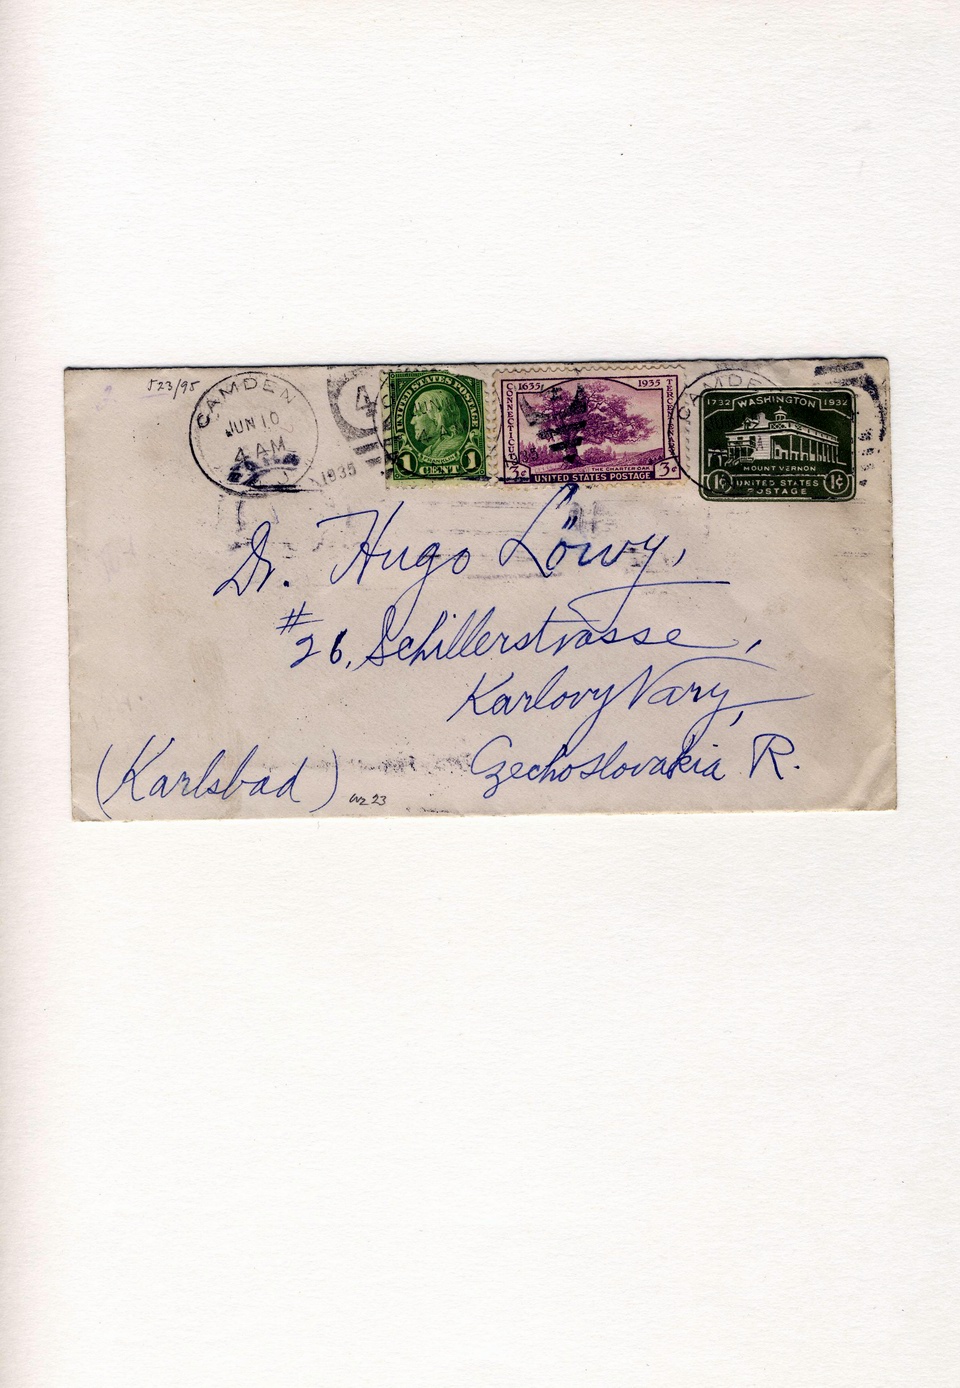 523/95
CAMDEN
JUN 10
4 AM
1935
4
UNITED STATES POSTAGE
FRANKLIN
1 CENT 1
1635 1935
CONNECTICUT
TERCENTENARY
THE CHARTER OAK
3¢ 3¢
UNITED STATES POSTAGE
CAMDE
1732 WASHINGTON 1932
MOUNT VERNON
1¢ UNITED STATES 1¢
POSTAGE
Dr. Hugo Löwy,
#26, Schillerstrasse,
Karlovy Vary,
Czechoslovakia R.
(Karlsbad)